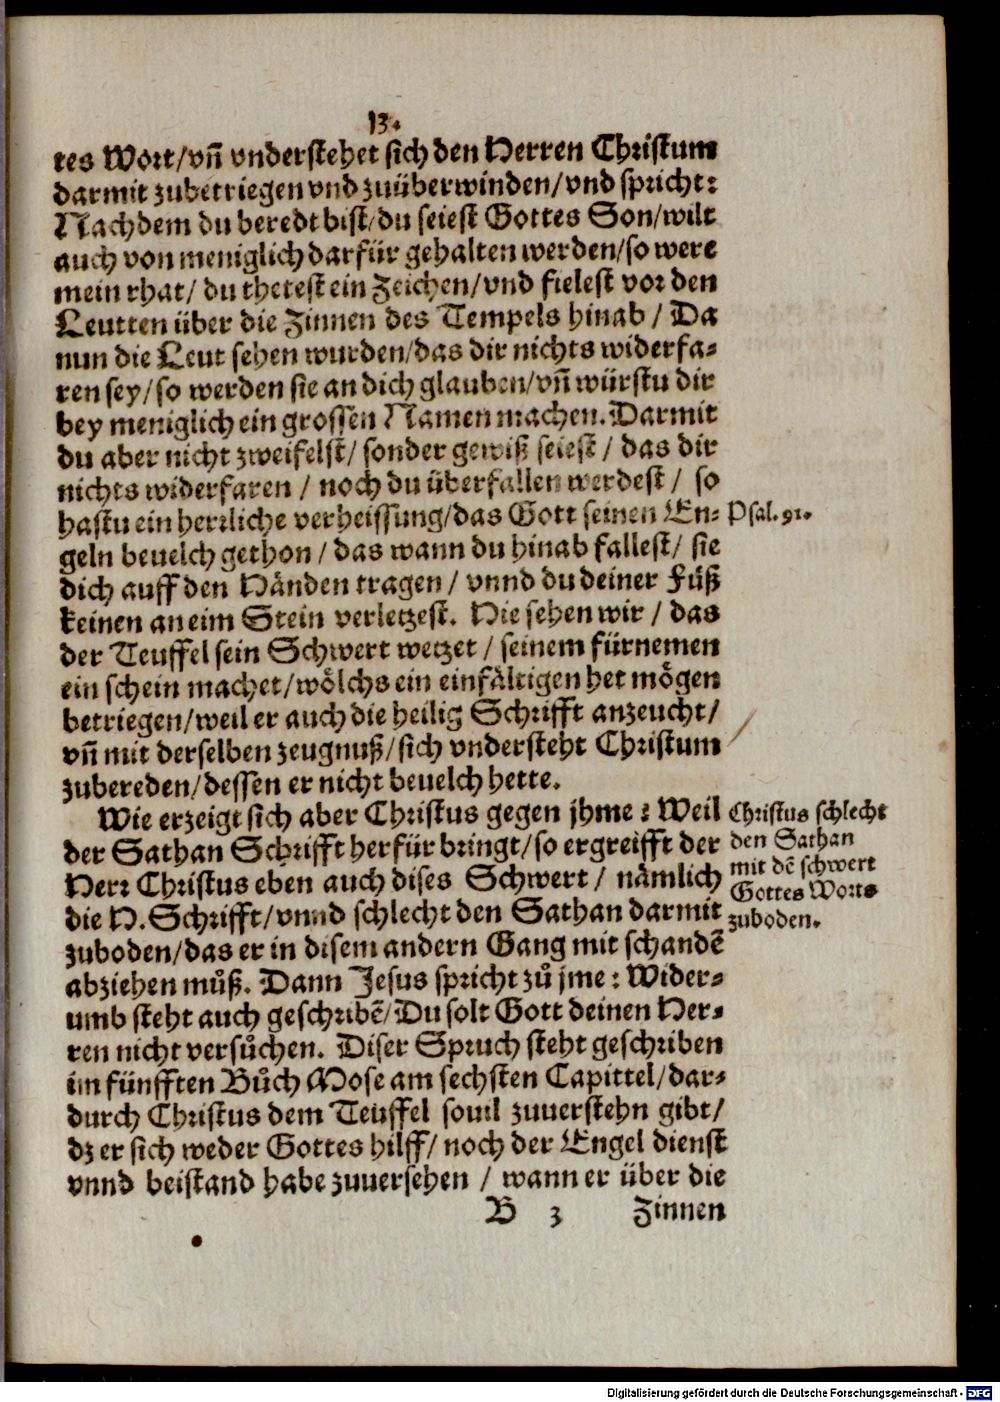 13.
tes Wort/vñ vnderstehet sich den Herren Christum
darmit zubetriegen vnd zuüberwinden/vnd spricht:
Nachdem du beredt bist/du seiest Gottes Son/wilt
auch von meniglich darfür gehalten werden/so were
mein rhat/ du thetest ein Zeichen/vnd fielest vor den
Leutten über die Zinnen des Tempels hinab / Da
nun die Leut sehen wurden/das dir nichts widerfa-
ren sey/so werden sie an dich glauben/vñ würstu dir
bey meniglich ein grossen Namen machen. Darmit
du aber nicht zweifelst/ sonder gewiß seiest / das dir
nichts widerfaren / noch du überfallen werdest / so
hastu ein herrliche verheissung/das Gott seinen En-
Psal. 91.
geln beuelch gethon / das wann du hinab fallest/ sie
dich auff den Händen tragen / vnnd du deiner Füß
keinen an eim Stein verletzest. Hie sehen wir / das
der Teuffel sein Schwert wetzet / seinem fürnemen
ein schein machet/wölchs ein einfältigen het mögen
betriegen/weil er auch die heilig Schrifft anzeucht/
vñ mit derselben zeugnuß/sich vndersteht Christum
zubereden/dessen er nicht beuelch hette.
Wie erzeigt sich aber Christus gegen jhme: Weil
der Sathan Schrifft herfür bringt/so ergreifft der
Herr Christus eben auch dises Schwert / nämlich
die H. Schrifft/vnnd schlecht den Sathan darmit
zuboden/das er in disem andern Gang mit schandē
abziehen můß. Dann Jesus spricht zů jme: Wider-
umb steht auch geschribē/Du solt Gott deinen Her-
ren nicht versůchen. Diser Spruch steht geschriben
im fünfften Bůch Mose am sechsten Capittel/dar-
durch Christus dem Teuffel souil zuuerstehn gibt/
dz er sich weder Gottes hilff/ noch der Engel dienst
vnnd beistand habe zuuersehen / wann er über die
Christus schlecht
den Sathan
mit dē schwert
Gottes Worts
zuboden.
B 3 Zinnen
Digitalisierung gefördert durch die Deutsche Forschungsgemeinschaft - DFG